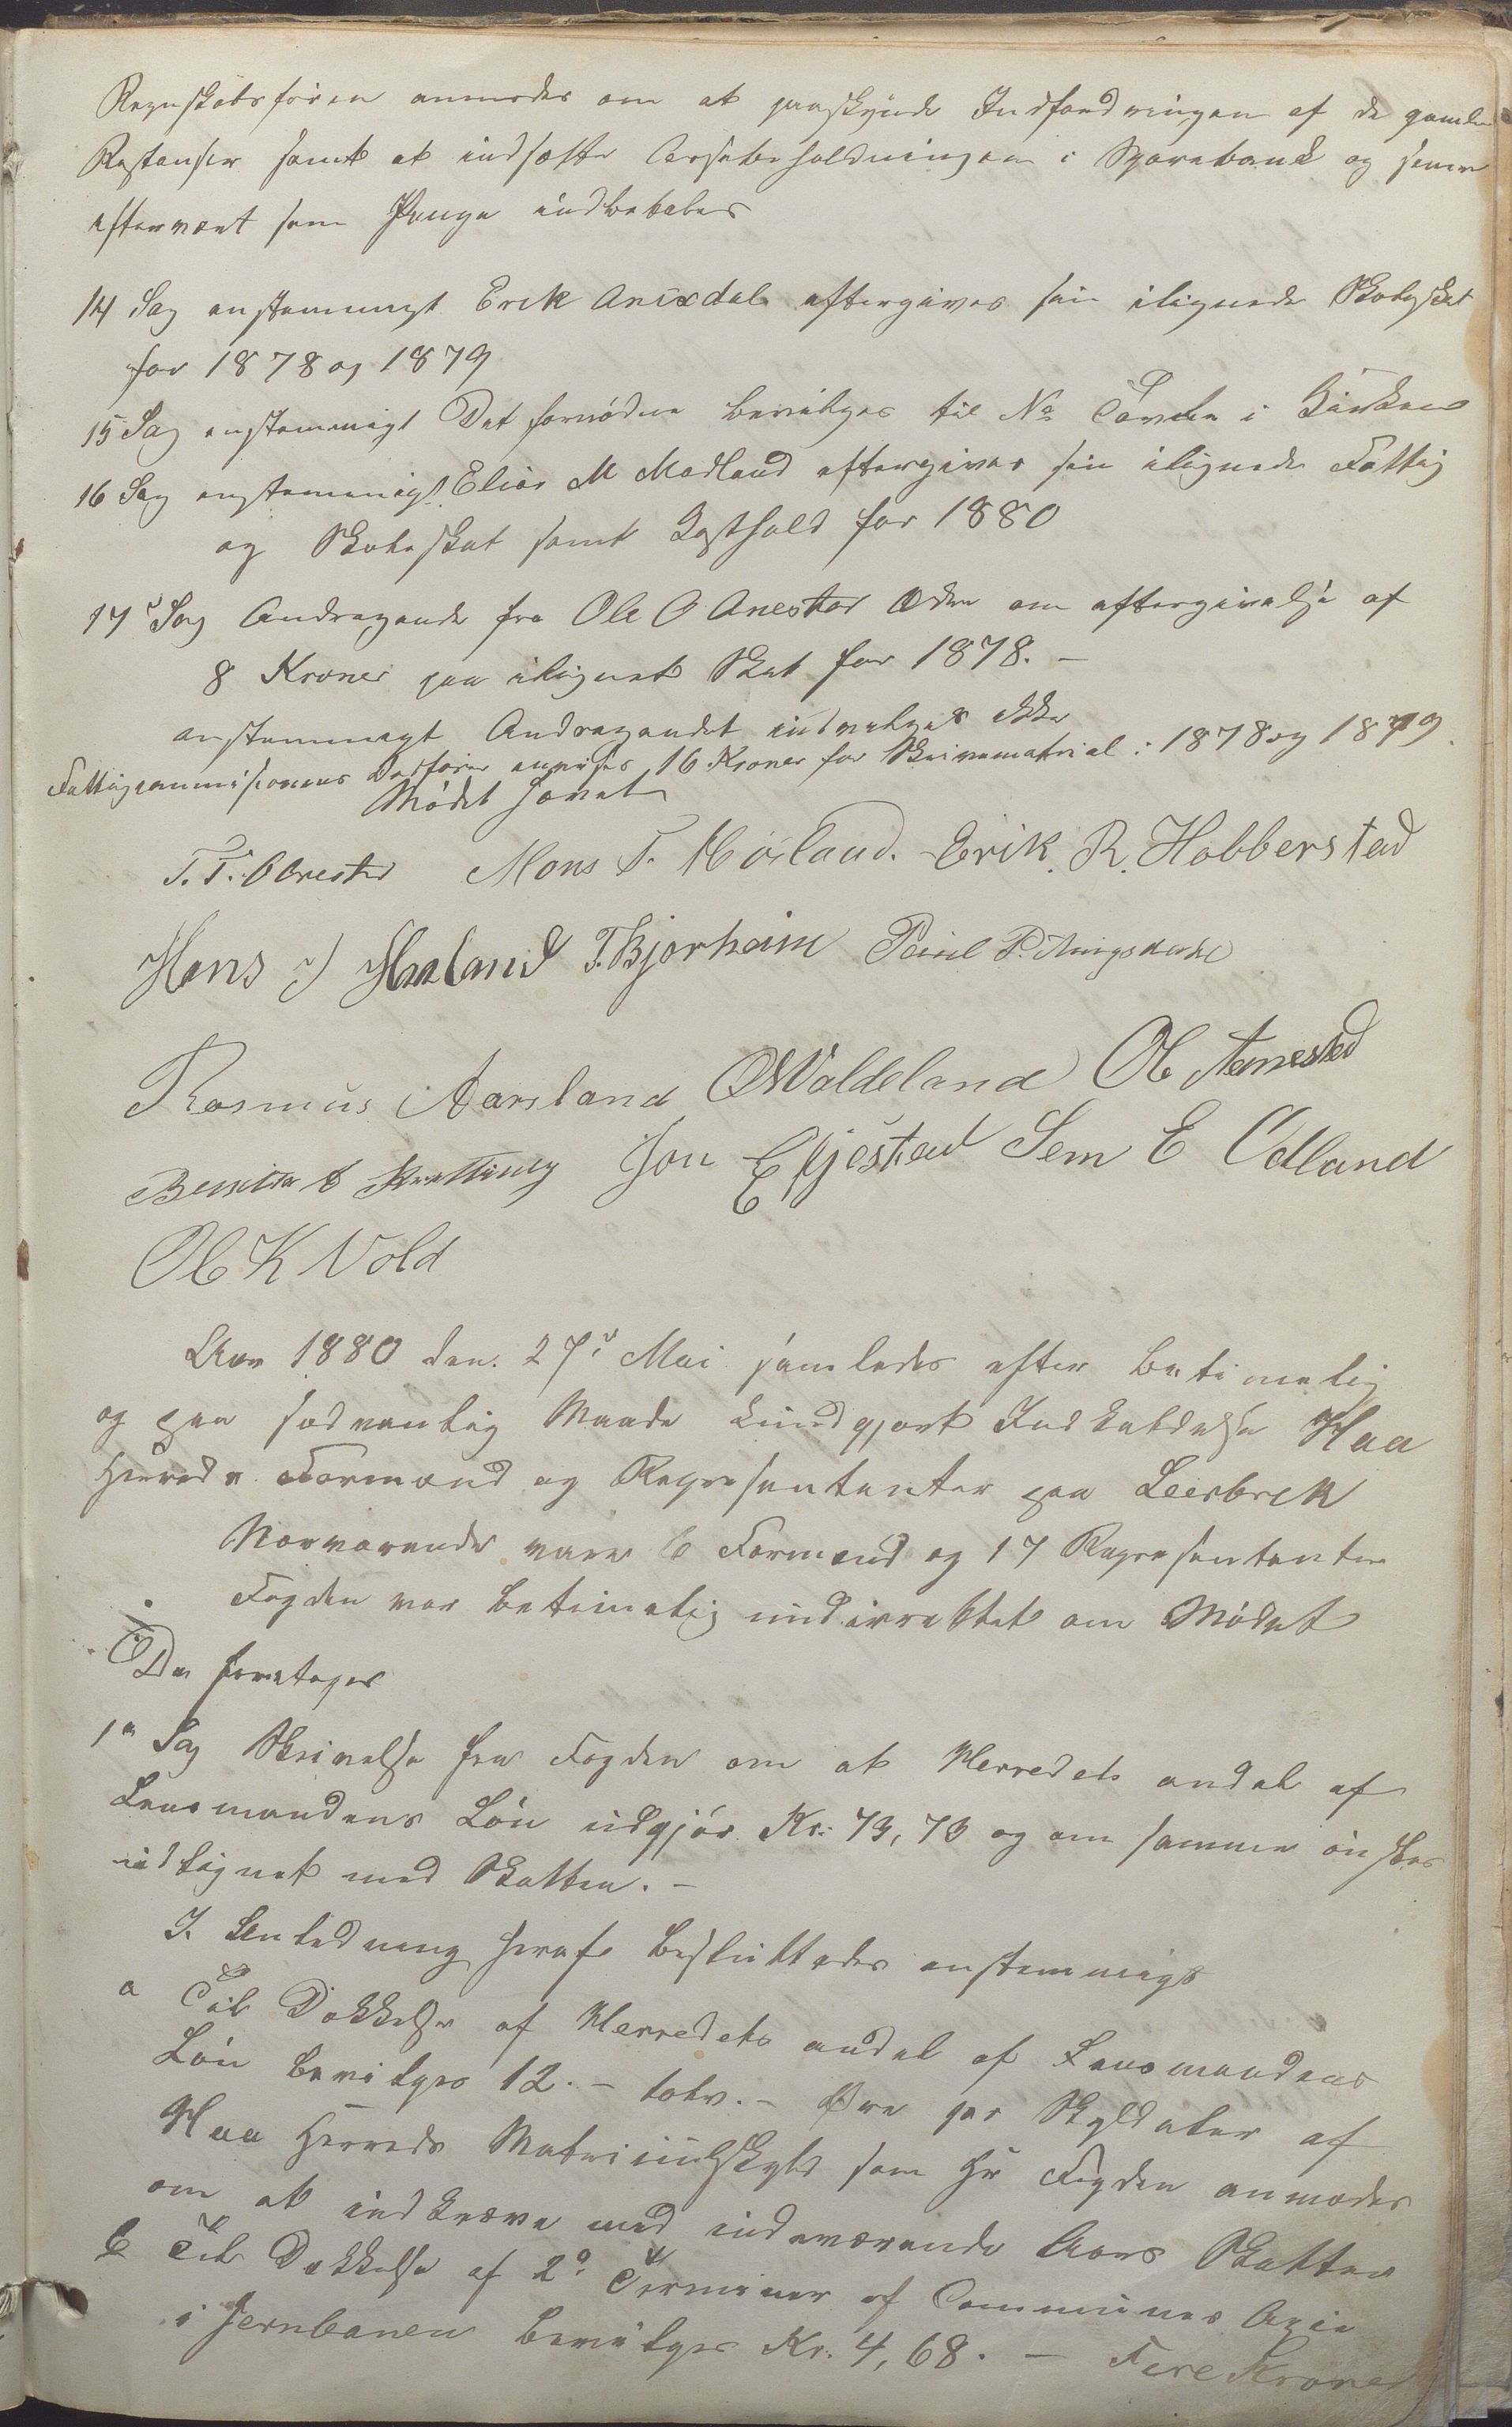 Regnskabsføreren anmodes om at paaskynde Indfordringen af de gamle
Restanser samt at indsætte Cassebeholdningen i Sparebank og senere
eftervært som Penge indbetales
14 Sag enstemmigt Erik Anixdal eftergives sin ilignede Skoleskat
for 1878 og 1879
15 Sag enstemmigt Det fornødne bevilges til No Tavle i Kirken
16 Sag enstemmigt Elias M Madland eftergives sin ilignede Fattig
og Skoleskat samt Kosthold for 1880
17d Sag Andragende fra Ole O Anestad om eftergivelse af
8 Kroner paa ilignet Skat for 1878. –
enstemmigt Andragendet indvilges ikke
Fattigcommisionens Ordfører anvises 16 Kroner for Skrivematrial i 1878 og 1879.
Mødet hævet
T. T. Obrestad Mons T. Høiland. Erik. R. Hobberstad
Hans J Haaland T. Bjorheim Paul P.
Rasmus Aarsland O Woldeland Ole Aanestad
Jon E Fjestad Sem E Odland
Ole K Vold
Aar 1880 den. 27d Mai samledes efter betimelig
og paa sædvanlig Maade kundgjort Indkaldelse Haa
Herreds Formænd og Representanter paa Leerbrek
Nærværende vare 6 Formænd og 17 Representanter
Fogden var betimelig underrettet om Mødet
Da foretages
1e Sag Skrivelse fra Fogden om at Herredets andel af
Lensmandens Løn udgjør Kr: 73,73 og om samme ønskes
udlignet med Skatten. –
I Anledning heraf besluttedes enstemmigt
a Til Dækkelse af Herredets andel af Lensmandens
Løn bevilges 12. – tolv. – Øre pr Skylddaler af
Haa Herreds Matriculskyld som Hr Fogden anmodes
om at indkræve med indeværende Aars Skatter
b Til Dækkelse af 2o Terminer af Communes Axie
i Jernbanen bevilges Kr. 4,68. – Fire Kroner